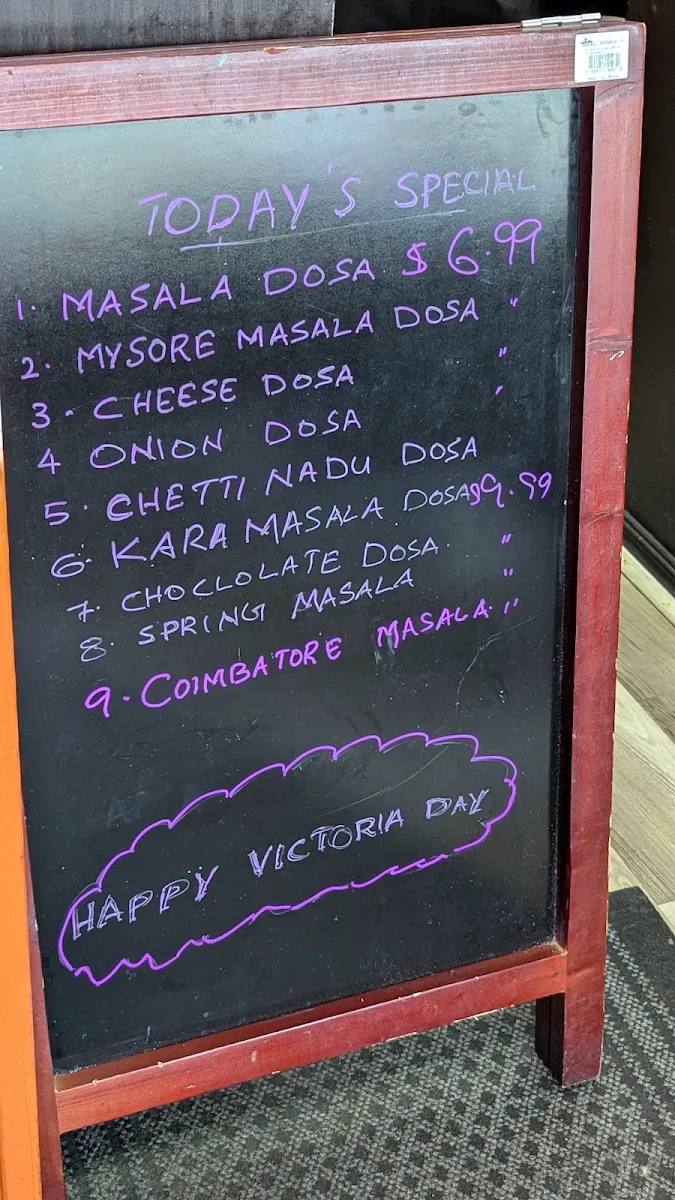 TODAY'S SPECIAL
1. MASALA DOSA $6.99
2. MYSORE MASALA DOSA "
3. CHEESE DOSA "
4 ONION DOSA "
5. CHETTI NADU DOSA
6. KARA MASALA DOSA $9.99
7. CHOCLOLATE DOSA. "
8. SPRING MASALA "
9. COIMBATORE MASALA. "
HAPPY VICTORIA DAY